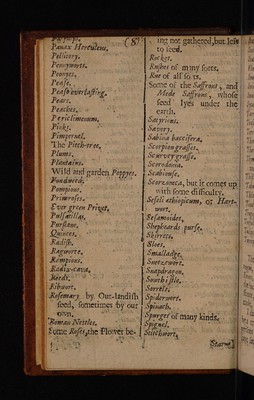 (87
Panax Herculeus.
Pellitory.
Pennyworts.
Peonyes.
Pease.
Pease everlasting.
Pears.
Peaches.
Periclimenum.
Picks.
Pimpernel.
The Pitch-tree.
Plums.
Plantains.
Wild and garden Poppyes.
Pondweed.
Pompions.
Primroses.
Ever green Privet.
Pulsatillas.
Purslane.
Quinces.
Radish.
Ragworts.
Rampions.
Radix cava.
Reeds.
Ribwort.
Rosemary by Out-landish
seed, sometimes by our
own.
Roman Nettles.
Some Roses, the Flower be-
ing not gathered, but left
to seed.
Rocket.
Rushes of many sorts.
Rue of all sorts.
Some of the Saffrons, and
Mede Saffrons, whose
seed lyes under the
earth.
Satyrions.
Savory.
Sabina baccifera.
Scorpion grasses.
Scurvy grasse.
Scorodonia.
Scabiouse.
Scorzonera, but it comes up
with some difficulty.
Seseli ethiopicum, or Hart-
wort.
Sesamoides.
Shepheards purse.
Skirrets.
Sloes.
Smalladge.
Sneezewort.
Snapdragon.
Sowthistle.
Sorrels.
Spiderwort.
Spinach.
Spurges of many kinds.
Spignel.
Stitchwort.